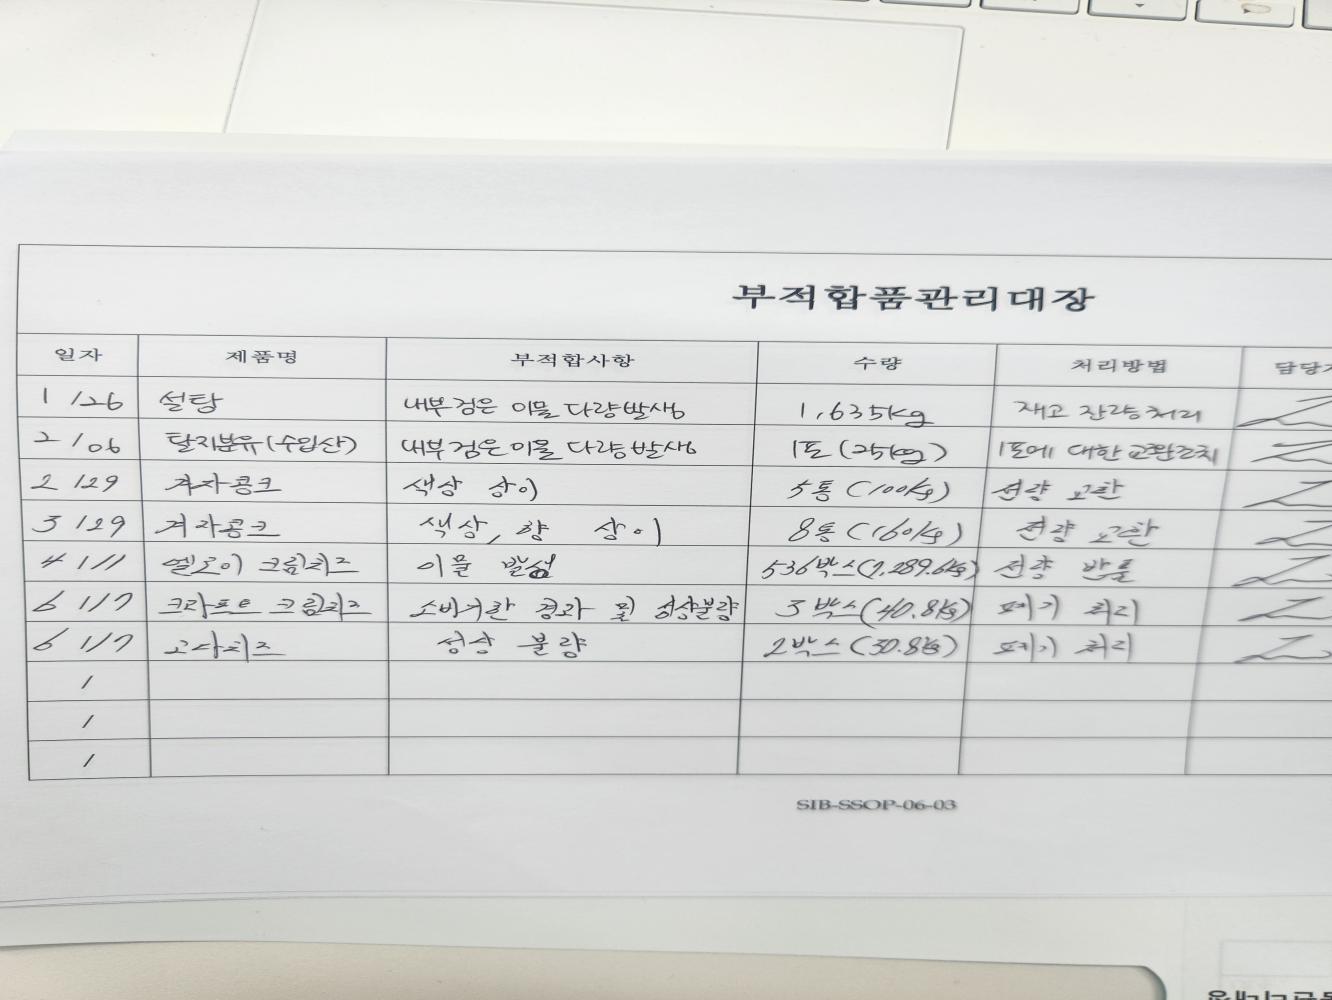 부적합품관리대장
일자 제품명 부적합사항 수량 처리방법 담당자
1 /26 설탕 내부 검은 이물 다량발생 1,635kg 재고 잔량처리
2 /06 탈지분유(수입산) 내부 검은 이물 다량발생 1포(25kg) 1포에 대한 교환조치
2 /29 겨자콩크 색상 상이 5통(100kg) 전량 교환
3 /29 겨자콩크 색상, 향 상이 8통(160kg) 전량 교환
4 /11 엘로이 크림치즈 이물 발생 536박스(7,289.6kg) 전량 반품
6 /17 크라프트 크림치즈 소비기한 경과 및 성상불량 3박스(40.8kg) 폐기 처리
6 /17 고다치즈 성상 불량 2박스(30.8kg) 폐기 처리
/
/
/
SIB-SSOP-06-03